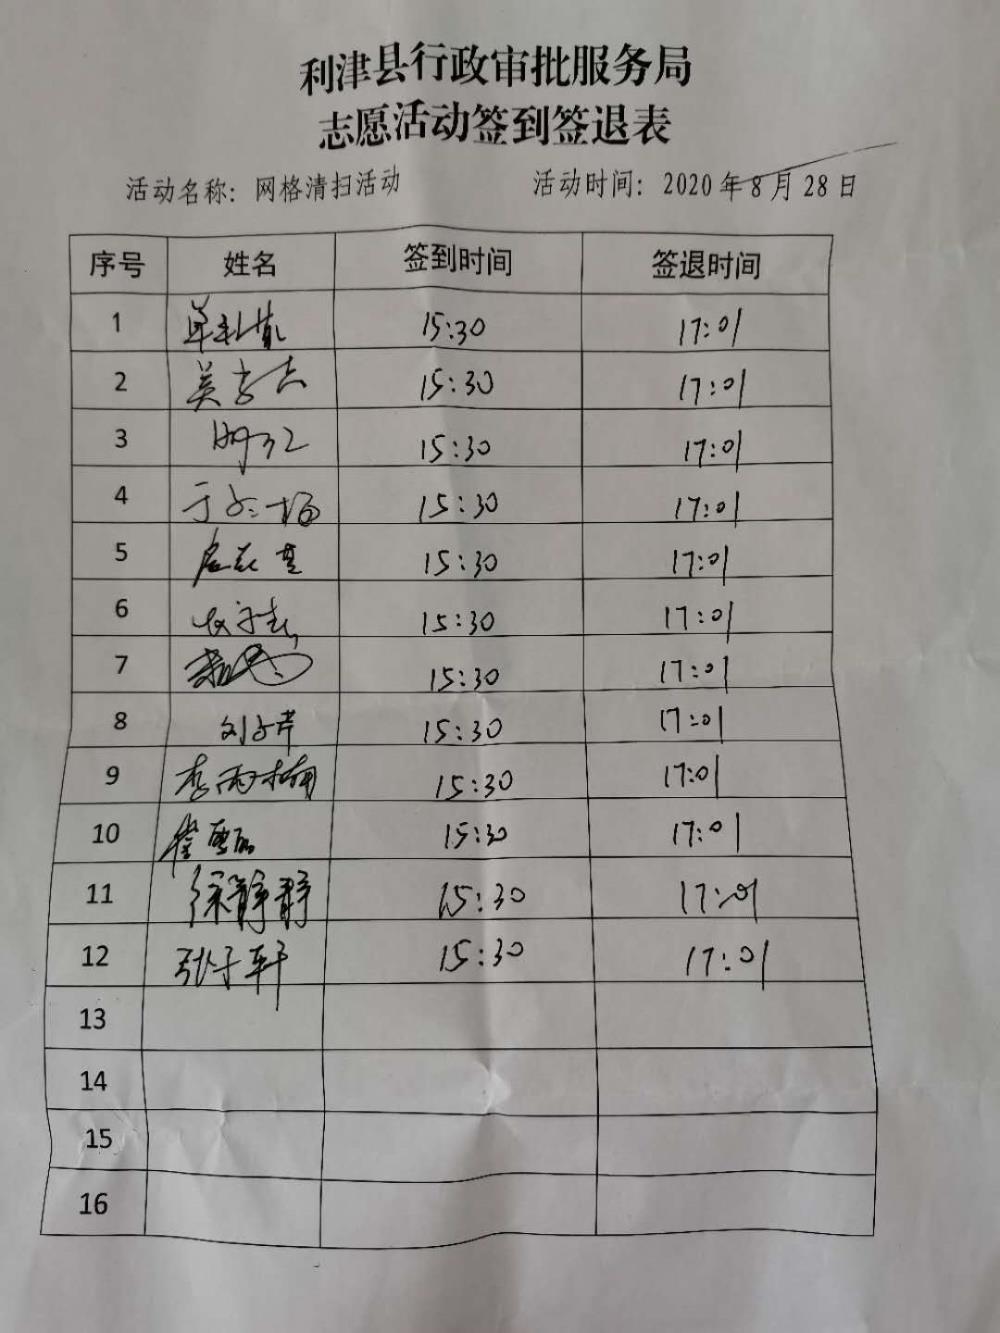 利津县行政审批服务局
志愿活动签到签退表
活动名称：网格清扫活动 活动时间：2020年8月28日
序号 姓名 签到时间 签退时间
1 15:30 17:01
2 15:30 17:01
3 15:30 17:01
4 15:30 17:01
5 15:30 17:01
6 15:30 17:01
7 15:30 17:01
8 15:30 17:01
9 李雨楠 15:30 17:01
10 15:30 17:01
11 徐静静 15:30 17:01
12 张子轩 15:30 17:01
13
14
15
16